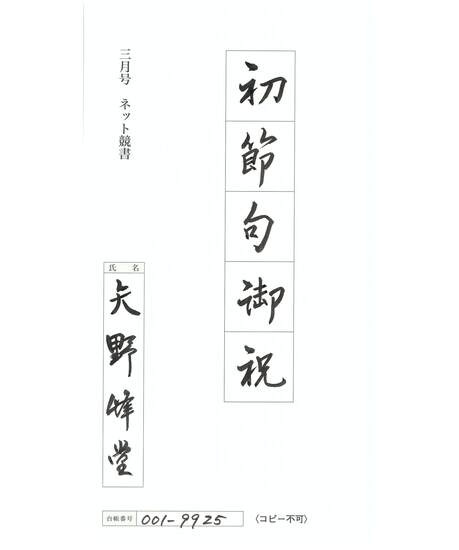 初節句御祝
三月号　ネット競書
氏名
矢野峰堂
台帳番号 001-9925 〈コピー不可〉